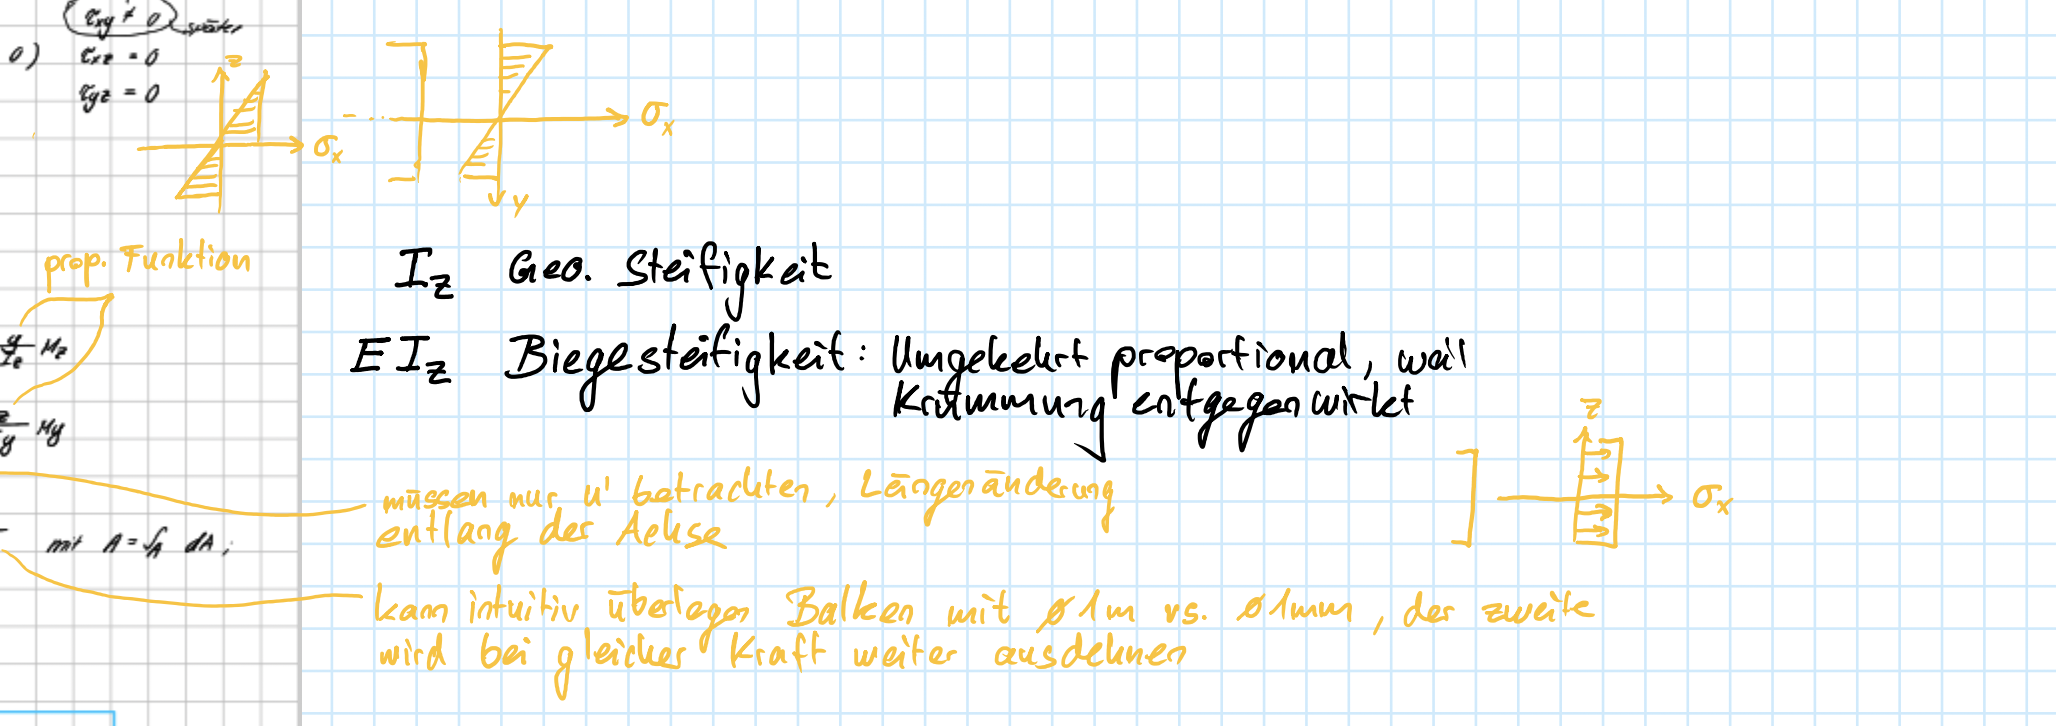 τxy ≠ 0 später
0) τxz = 0
τyz = 0
z
σx
σx
y
prop. Funktion
Iz Geo. Steifigkeit
y/Iz Mz
EIz Biegesteifigkeit: Umgekehrt proportional, weil
Krümmung entgegenwirkt
z/Iy My
z
σx
müssen nur u' betrachten, Längenänderung
entlang der Achse
mit A = ∫A dA ;
kann intuitiv überlegen Balken mit ø1m vs. ø1mm, der zweite
wird bei gleicher Kraft weiter ausdehnen